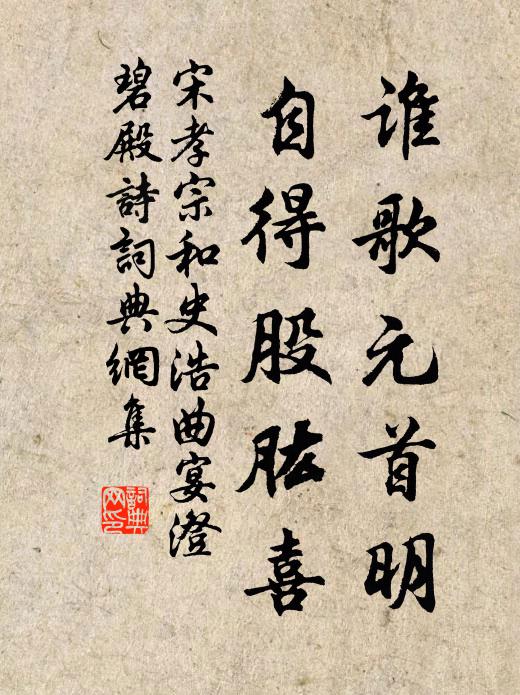 谁歌元首明
自得股肱喜
宋孝宗和史浩曲宴澄
碧殿詩詞典網集
詞典网印